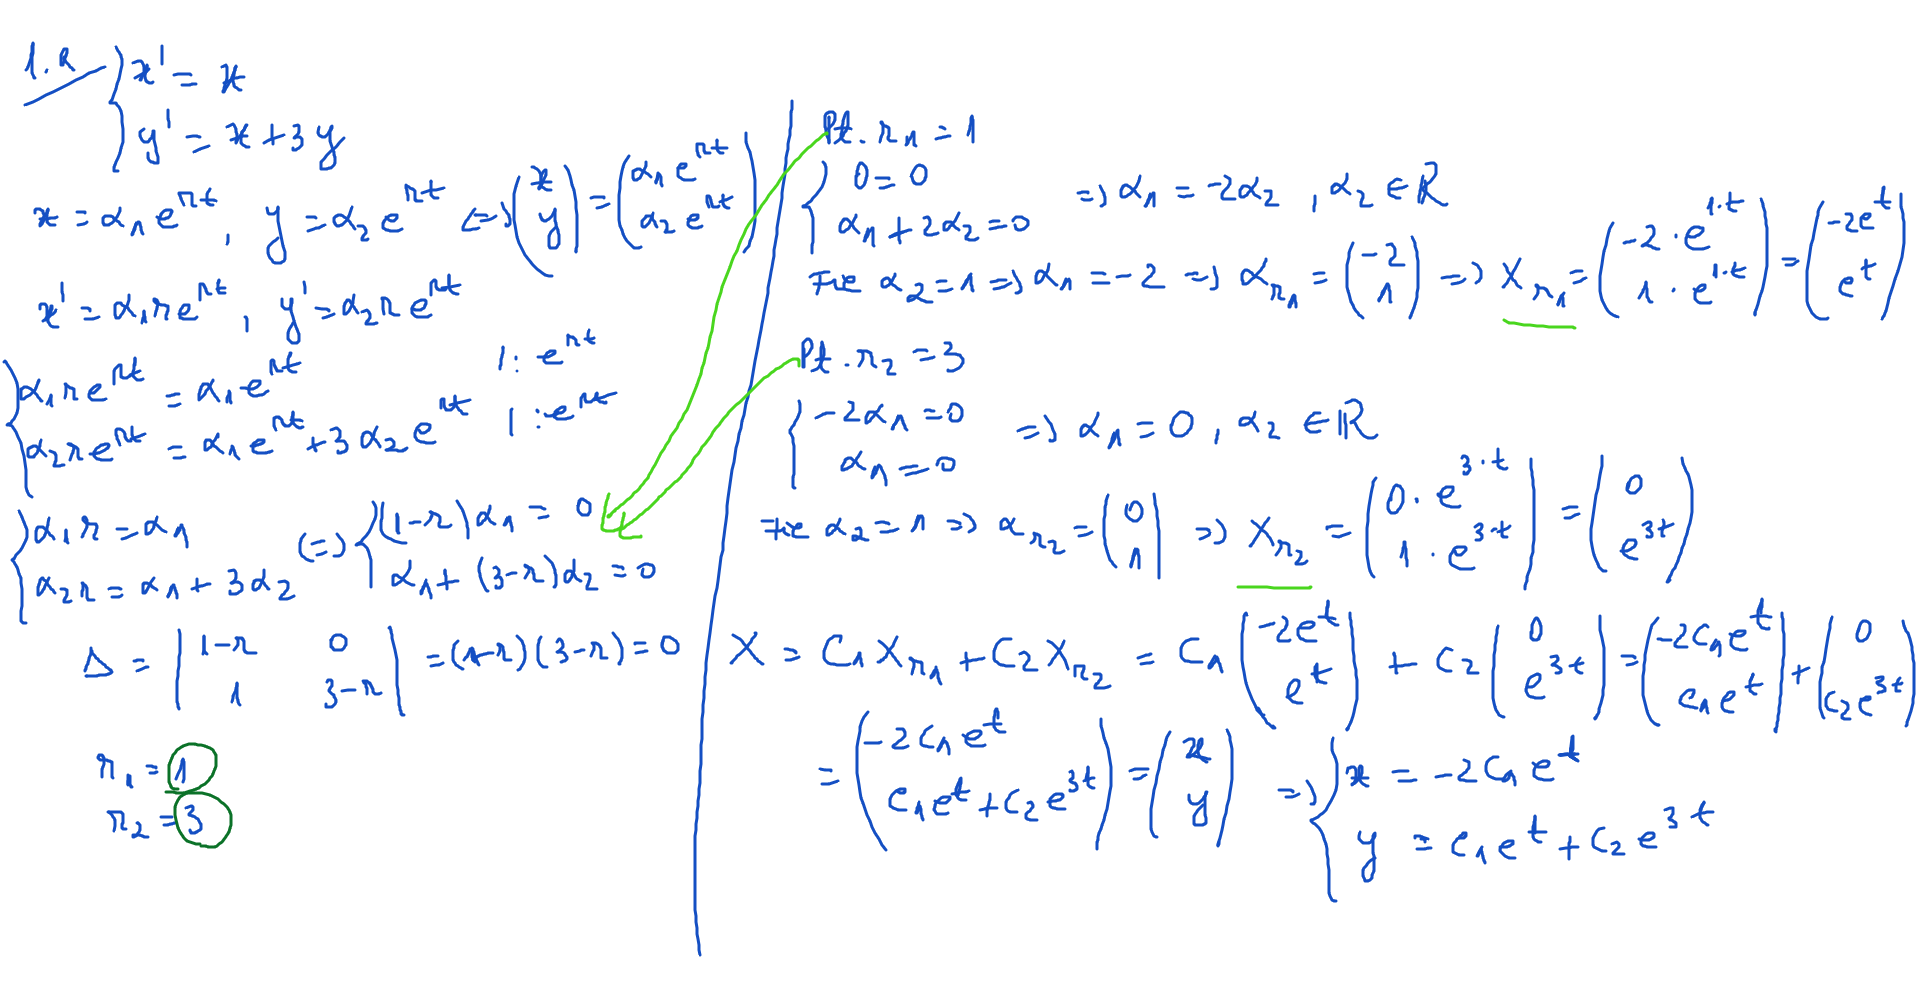 1.a { x' = x
y' = x + 3y
x = α₁e^{rt}, y = α₂e^{rt} (=) (x y) = (α₁e^{rt} α₂e^{rt})
x' = α₁re^{rt}, y' = α₂re^{rt}
{ α₁re^{rt} = α₁e^{rt} |: e^{rt}
α₂re^{rt} = α₁e^{rt} + 3α₂e^{rt} |: e^{rt}
{ α₁r = α₁ (=) { (1-r)α₁ = 0
α₂r = α₁ + 3α₂ α₁ + (3-r)α₂ = 0
Δ = | 1-r 0 | = (1-r)(3-r) = 0
| 1 3-r |
r₁ = 1
r₂ = 3
Pt. r₁ = 1
{ 0 = 0 =) α₁ = -2α₂, α₂ ∈ ℝ
α₁ + 2α₂ = 0
Fie α₂ = 1 =) α₁ = -2 =) α_{r₁} = (-2 1) =) X_{r₁} = (-2·e^{1·t} 1·e^{1·t}) = (-2e^t e^t)
Pt. r₂ = 3
{ -2α₁ = 0 =) α₁ = 0, α₂ ∈ ℝ
α₁ = 0
Fie α₂ = 1 =) α_{r₂} = (0 1) =) X_{r₂} = (0·e^{3·t} 1·e^{3·t}) = (0 e^{3t})
X = C₁X_{r₁} + C₂X_{r₂} = C₁(-2e^t e^t) + C₂(0 e^{3t}) = (-2C₁e^t C₁e^t) + (0 C₂e^{3t})
= (-2C₁e^t C₁e^t + C₂e^{3t}) = (x y) =) { x = -2C₁e^t
y = C₁e^t + C₂e^{3t}